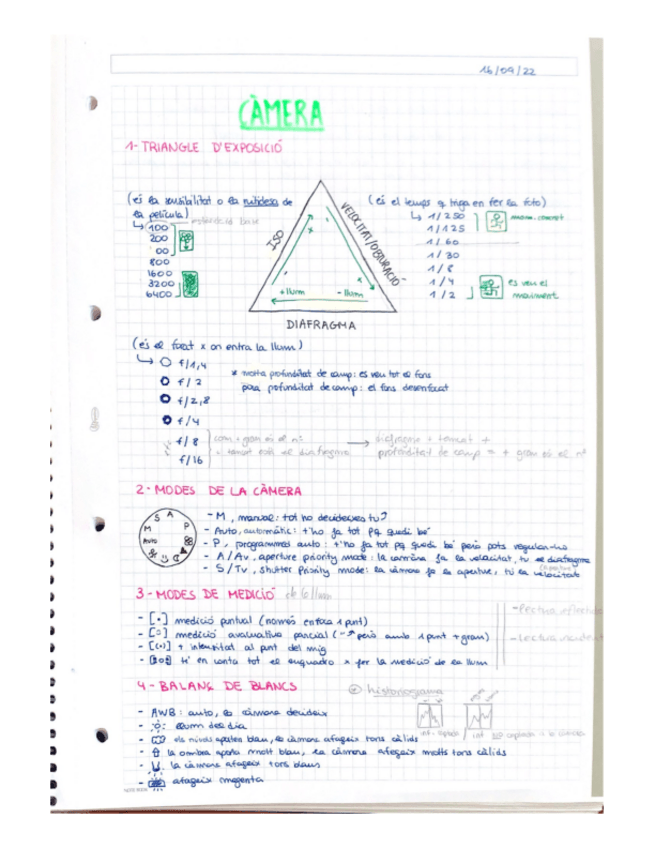 16/09/22
CÀMERA
1- TRIANGLE D'EXPOSICIÓ
(és la sensibilitat o la nitidesa de
la película)
100
200
00
800
1600
3200
6400
ISO
VELOCITAT/OBTURACIÓ
DIAFRAGMA
+ llum
- llum
(és el temps q triga en fer la foto)
1/250
1/125
1/60
1/30
1/8
1/4
1/2
es veu el
moviment
(és el forat x on entra la llum)
f/1,4
f/2
f/2,8
f/4
f/8
f/16
* molta profunditat de camp: es veu tot el fons
poca profunditat de camp: el fons desenfocat
com + gran és el nº
+ tancat està el diafragma
diafragma + tancat +
profunditat de camp = + gran és el nº
2- MODES DE LA CÀMERA
S A
M P
Auto
- M, manual: tot ho decideixes tu?
- Auto, automàtic: t'ho fa tot pq quedi bé
- P, programmed auto: t'ho fa tot pq quedi bé però pots regular-ho
- A/Av, aperture priority mode: la càmara fa la velocitat, tu el diafragma
- S/Tv, shutter priority mode: la càmara fa la apertura, tu la velocitat
3- MODES DE MEDICIÓ de la llum
- [•] medició puntual (només enfoca 1 punt)
medició avaluativa parcial (però amb 1 punt + gran)
+ intensitat al punt del mig
té en conta tot el enquadro x fer la medició de la llum
- lectura reflectida
- lectura incident
4- BALANÇ DE BLANCS
historiograma
- AWB: auto, la càmara decideix
llum des dia
els núvols aporten blau, la càmara afegeix tons càlids
la ombra aporta molt blau, la càmara afegeix molts tons càlids
la càmara afegeix tons blaus
afegeix magenta